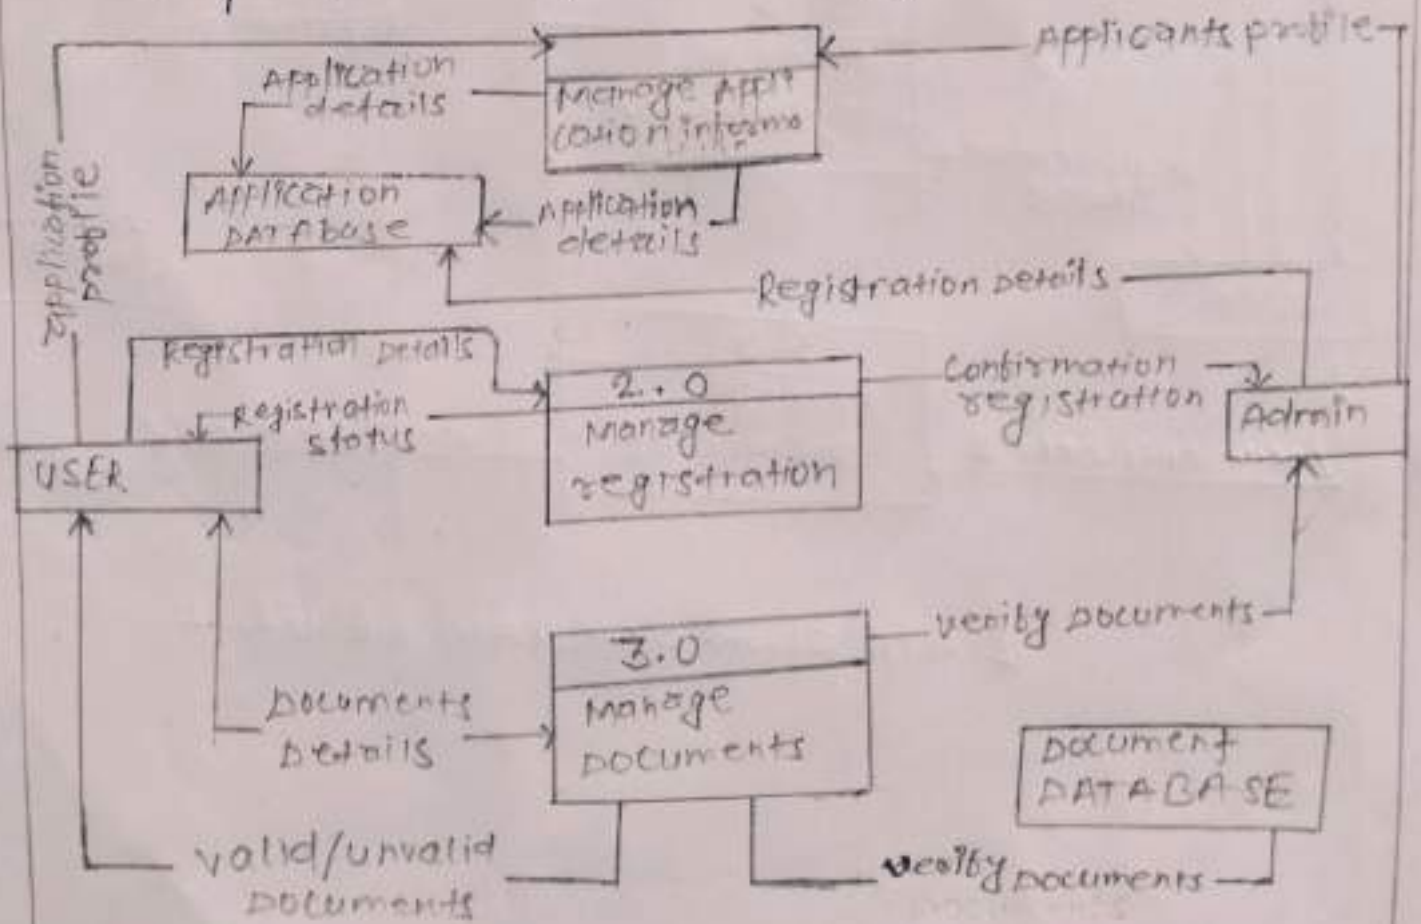 Applicants profile
Application
details
Manage Appli
cation informa
application
profile
Application
DATAbase
Application
details
Registration Details
Registration Details
Registration
status
2.0
Manage
registration
Confirmation
registration
Admin
USER
3.0
Manage
Documents
verify Documents
Documents
Details
Document
DATABASE
valid/unvalid
Documents
verify Documents